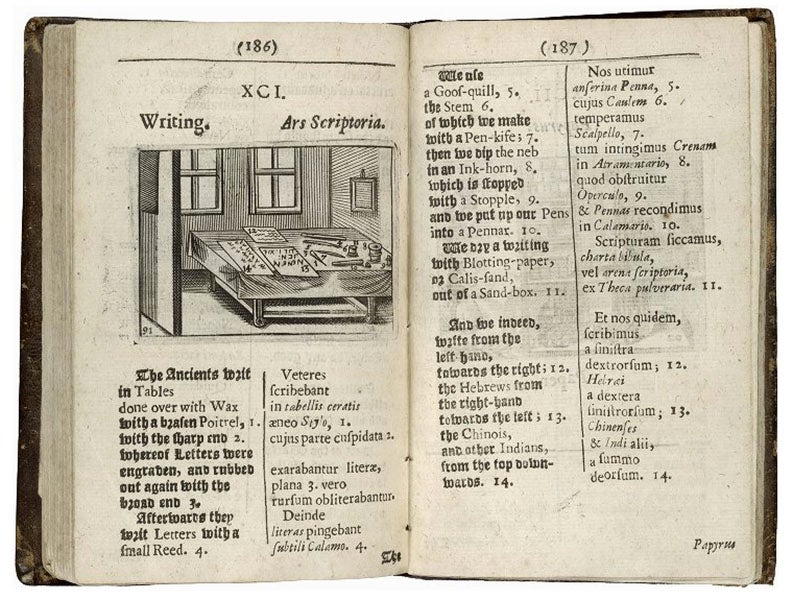 (186)
XCI.
Writing.
Ars Scriptoria.
91
The Ancients writ
in Tables
done over with Wax
with a brasen Poitrel, 1.
with the sharp end 2.
whereof Letters were
engraven, and rubbed
out again with the
broad end 3.
Afterwards they
writ Letters with a
small Reed. 4.
Veteres
scribebant
in tabellis ceratis
æneo Stylo, 1.
cujus parte cuspidata 2.
exarabantur literæ,
plana 3. vero
rursum obliterabantur.
Deinde
literas pingebant
subtili Calamo. 4.
(187)
We use
a Goos-quill, 5.
the Stem 6.
of which we make
with a Pen-kife; 7.
then we dip the neb
in an Ink-horn, 8.
which is stopped
with a Stopple, 9.
and we put up our Pens
into a Pennar. 10.
We dry a writing
with Blotting-paper,
or Calis-sand,
out of a Sand-box. 11.
And we indeed,
write from the
left-hand,
towards the right; 12.
the Hebrews from
the right-hand
towards the left; 13.
the Chinois,
and other Indians,
from the top down-
wards. 14.
Nos utimur
anserina Penna, 5.
cujus Caulem 6.
temperamus
Scalpello, 7.
tum intingimus Crenam
in Atramentario, 8.
quod obstruitur
Operculo, 9.
& Pennas recondimus
in Calamario. 10.
Scripturam siccamus,
charta bibula,
vel arena scriptoria,
ex Theca pulveraria. 11.
Et nos quidem,
scribimus
a sinistra
dextrorsum; 12.
Hebræi
a dextera
sinistrorsum; 13.
Chinenses
& Indi alii,
a summo
deorsum. 14.
Papyrus